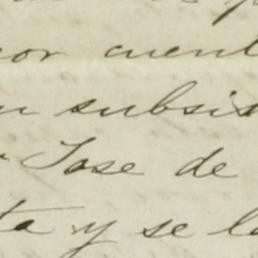 por cuent
subsis
Jose de
ta y se lo